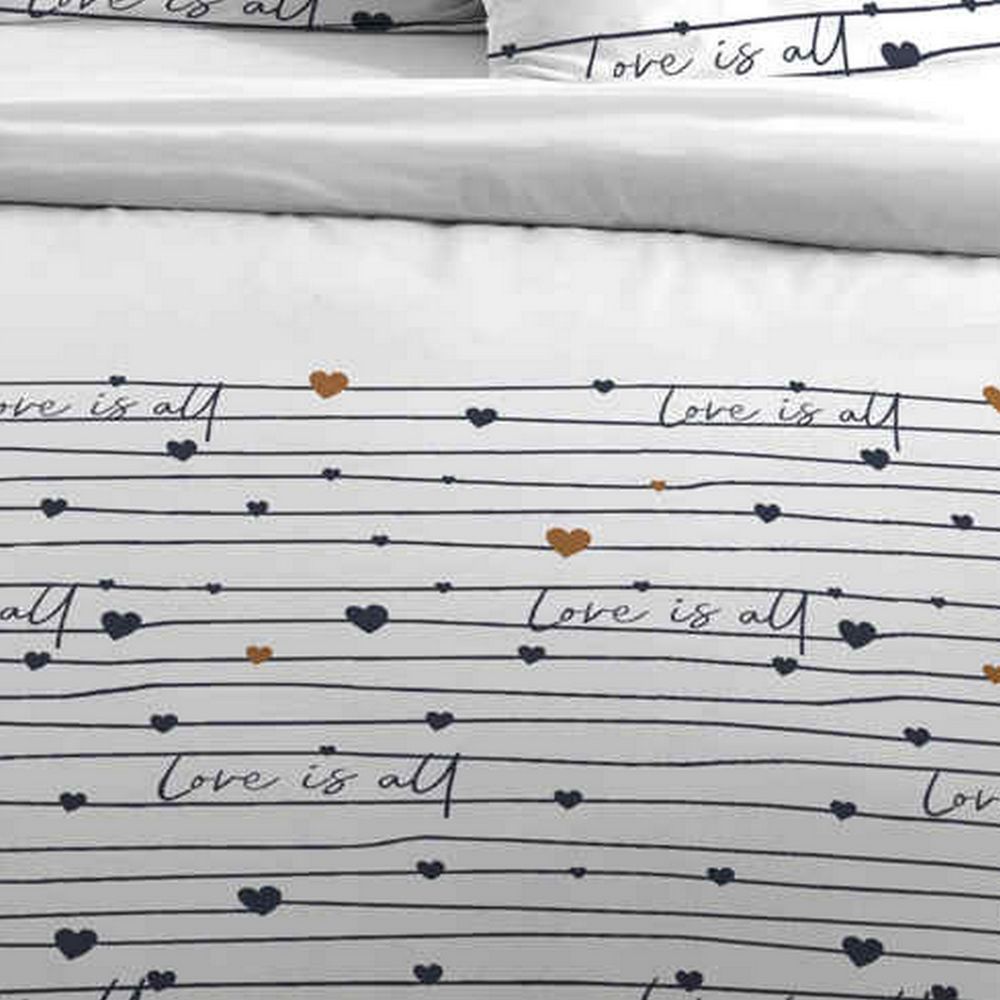 Love is all
Love is all
ove is all
Love is all
all
Love is all
Love is all
Lov